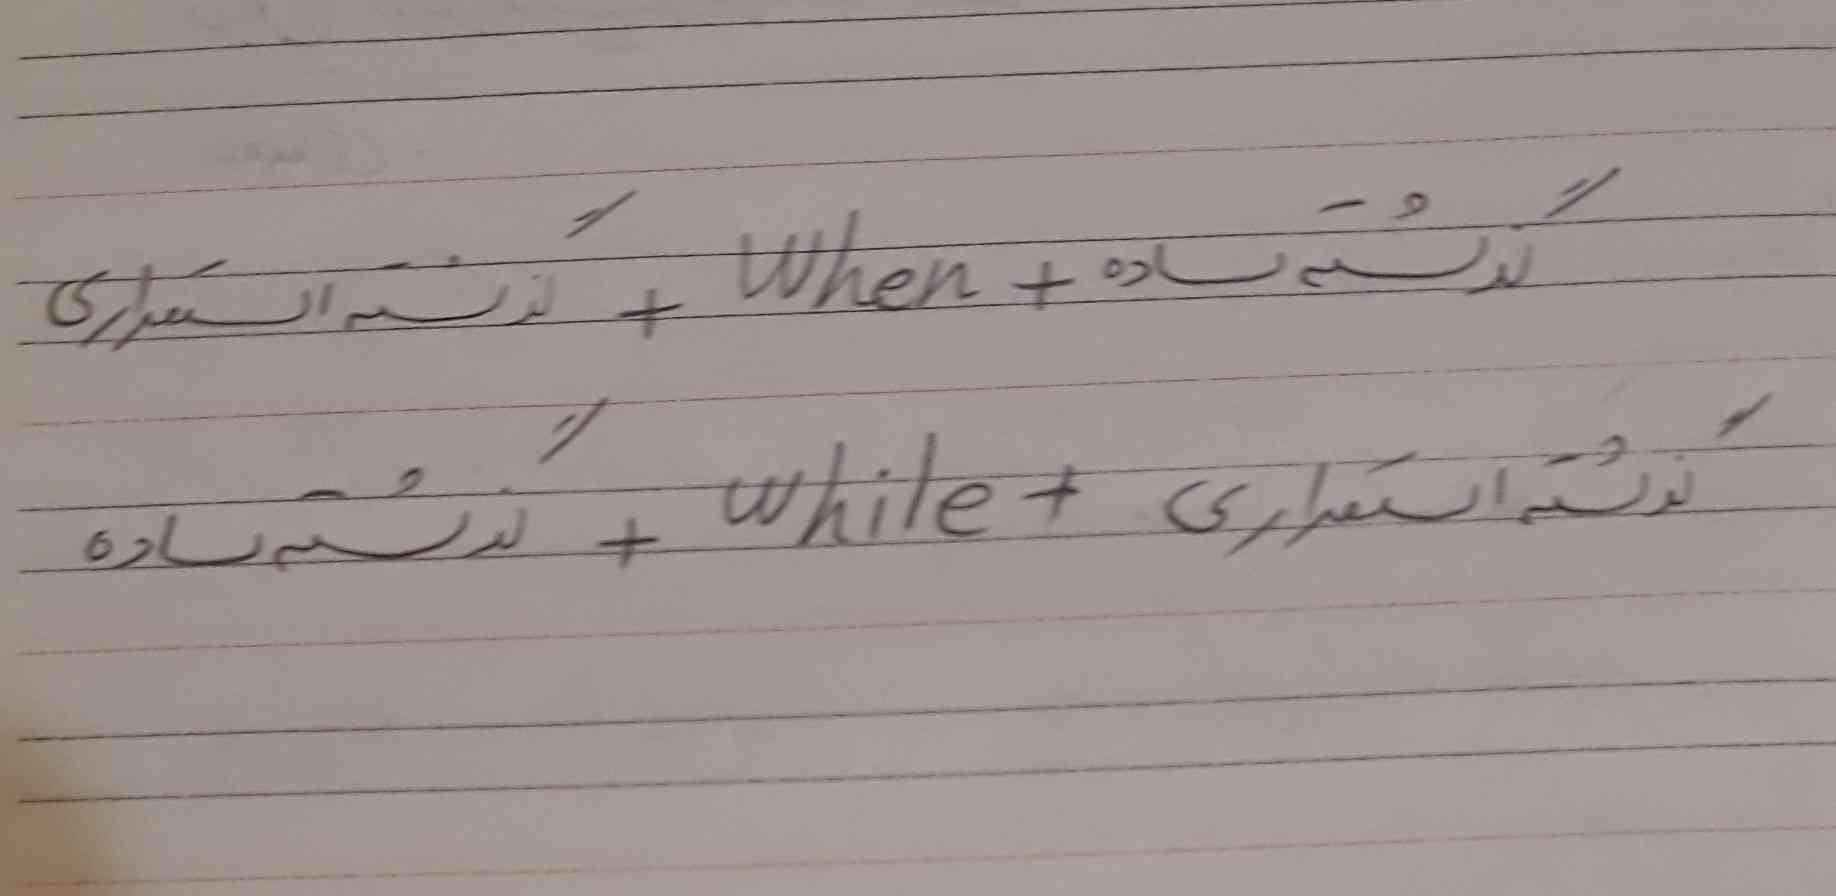 گذشته استمراری + When + گذشته ساده
گذشته ساده + while + گذشته استمراری